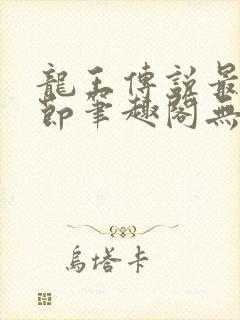 龍王傳說最
節筆趣閣無
烏塔卡